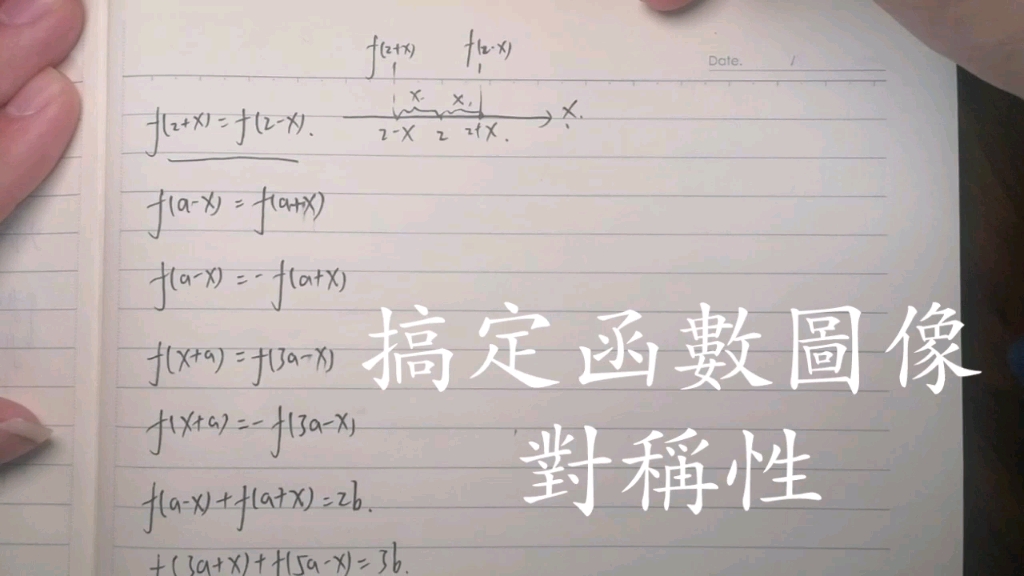 f(2+x) f(2-x)
Date. /
x x
x.
2-x 2 2+x.
f(2+x)=f(2-x).
f(a-x)=f(a+x)
f(a-x)=-f(a+x)
f(x+a)=f(3a-x)
f(x+a)=-f(3a-x)
f(a-x)+f(a+x)=2b.
f(3a+x)+f(5a-x)=3b.
搞定函數圖像
對稱性